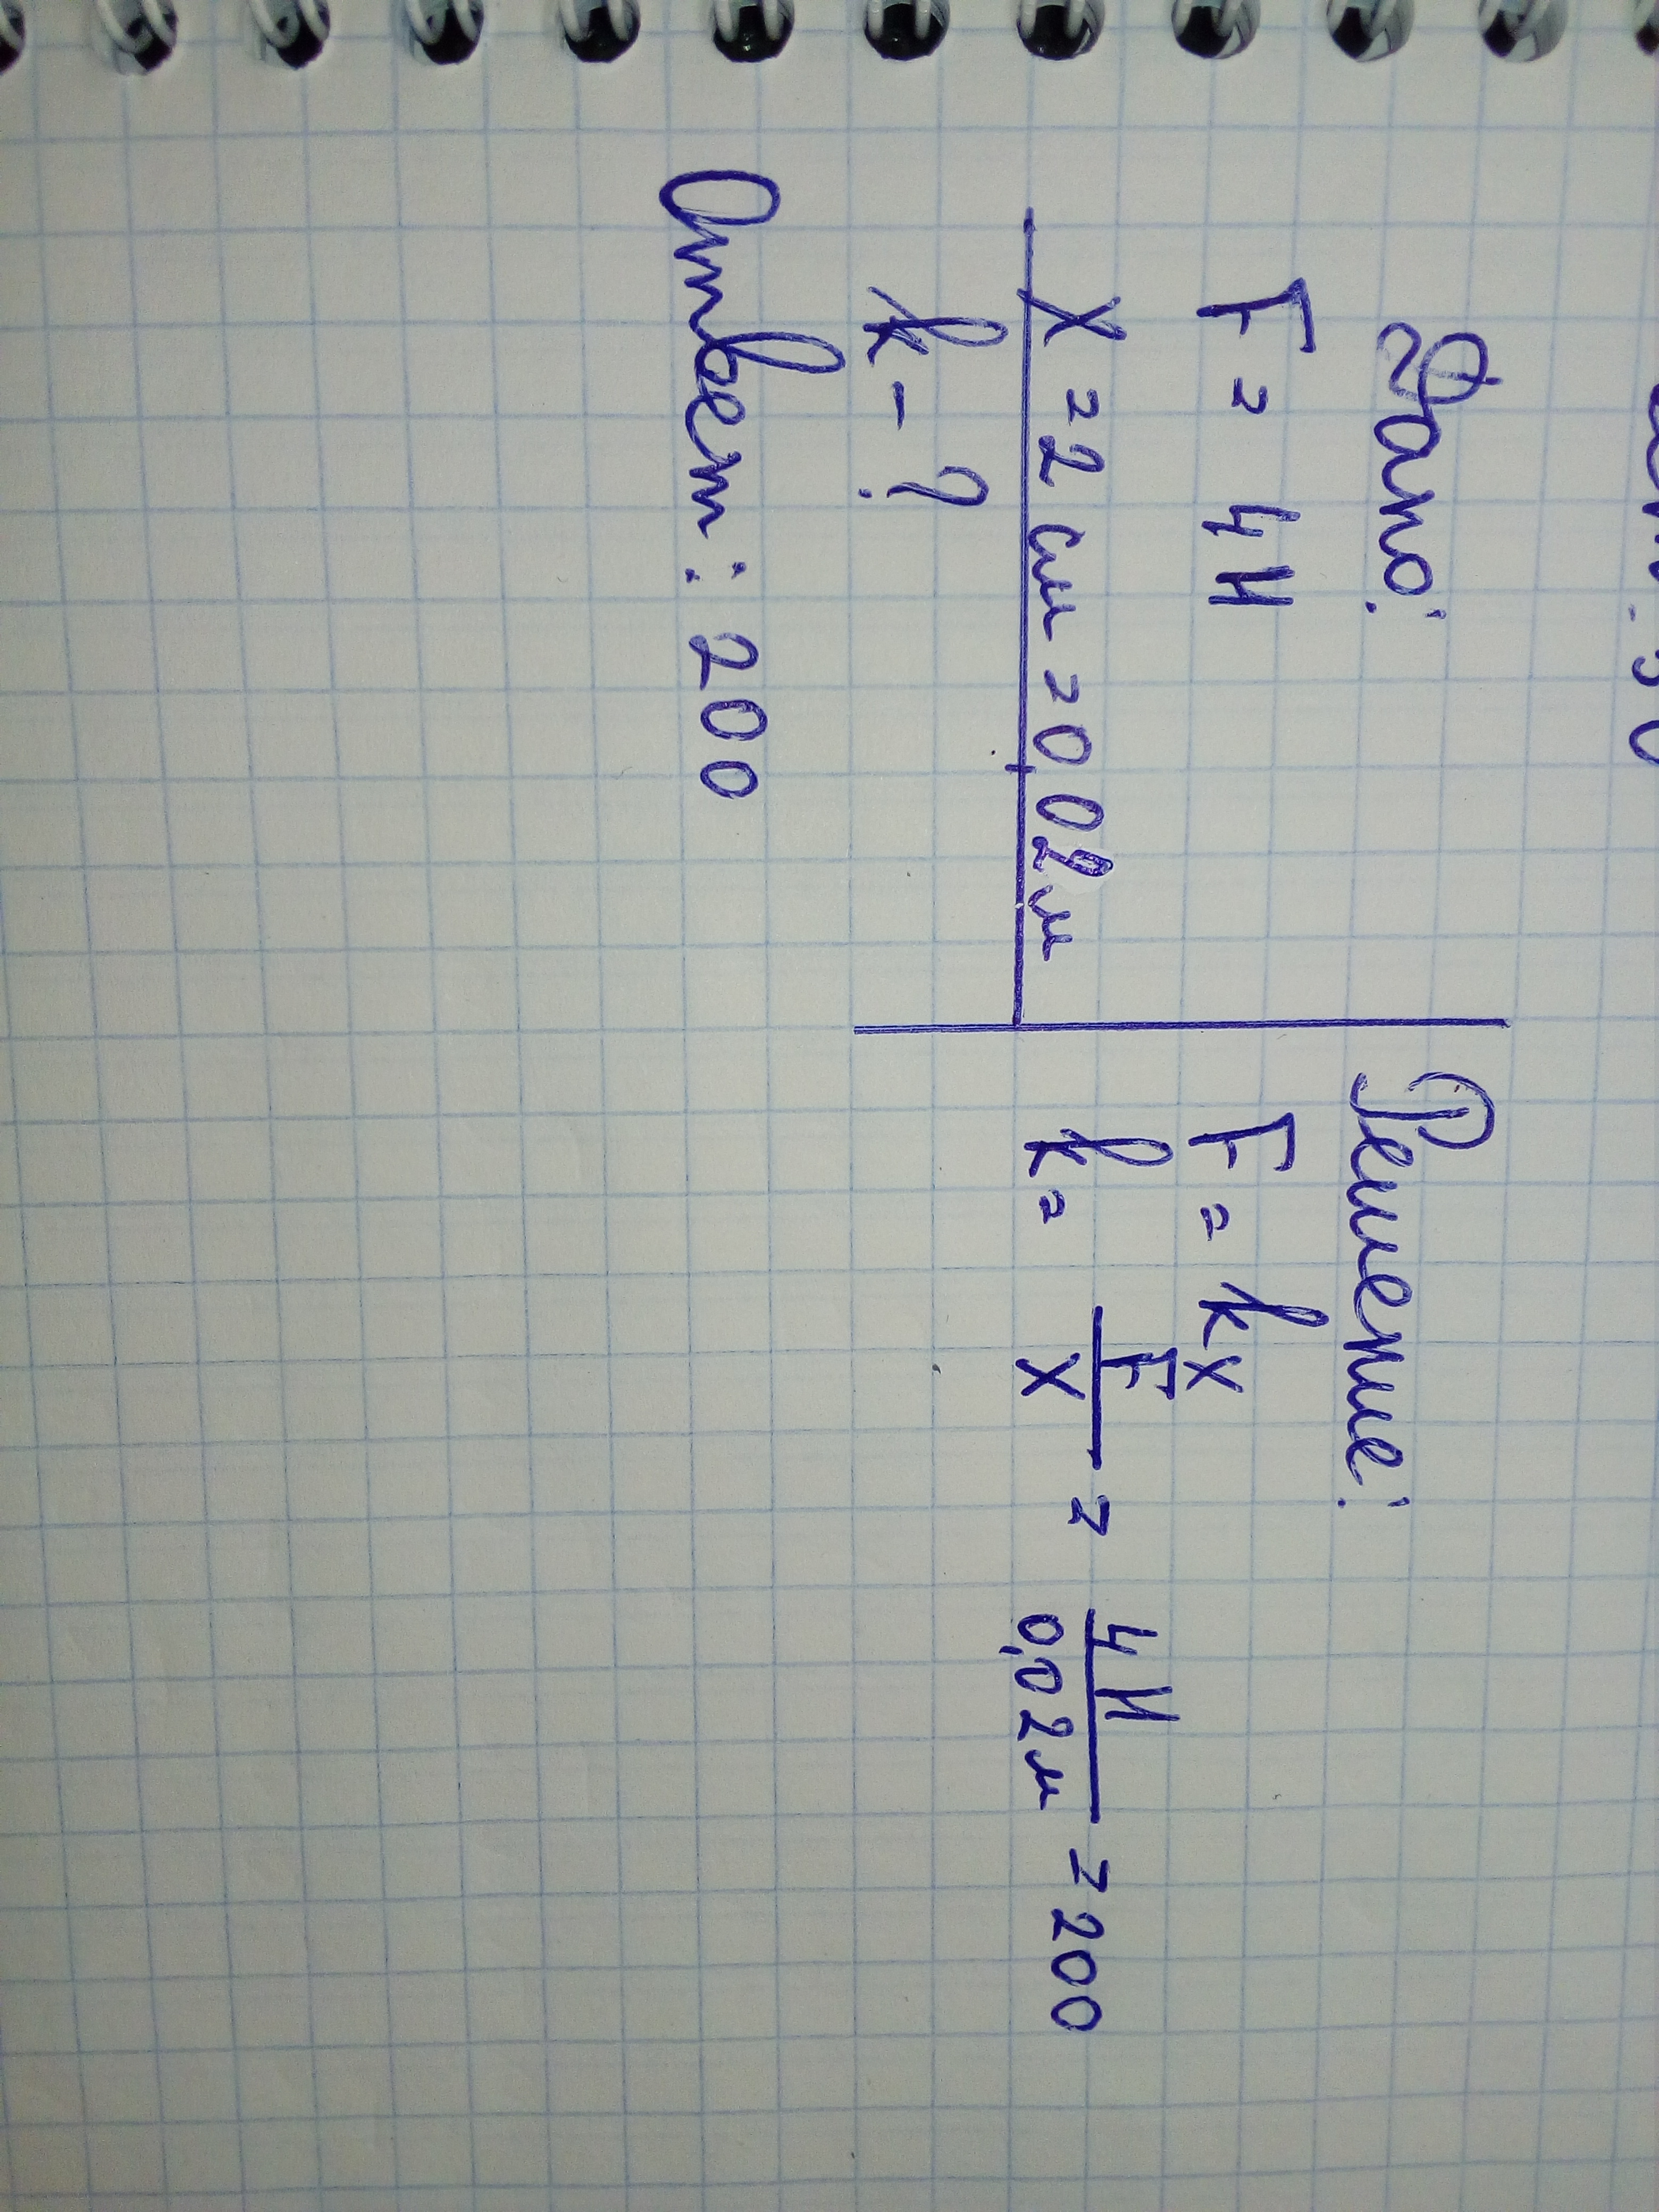 Дано:
F = 4 Н
x = 2 см = 0,02 м
k - ?
Решение:
F = kx
k = F/x = 4Н/0,02м = 200
Ответ: 200